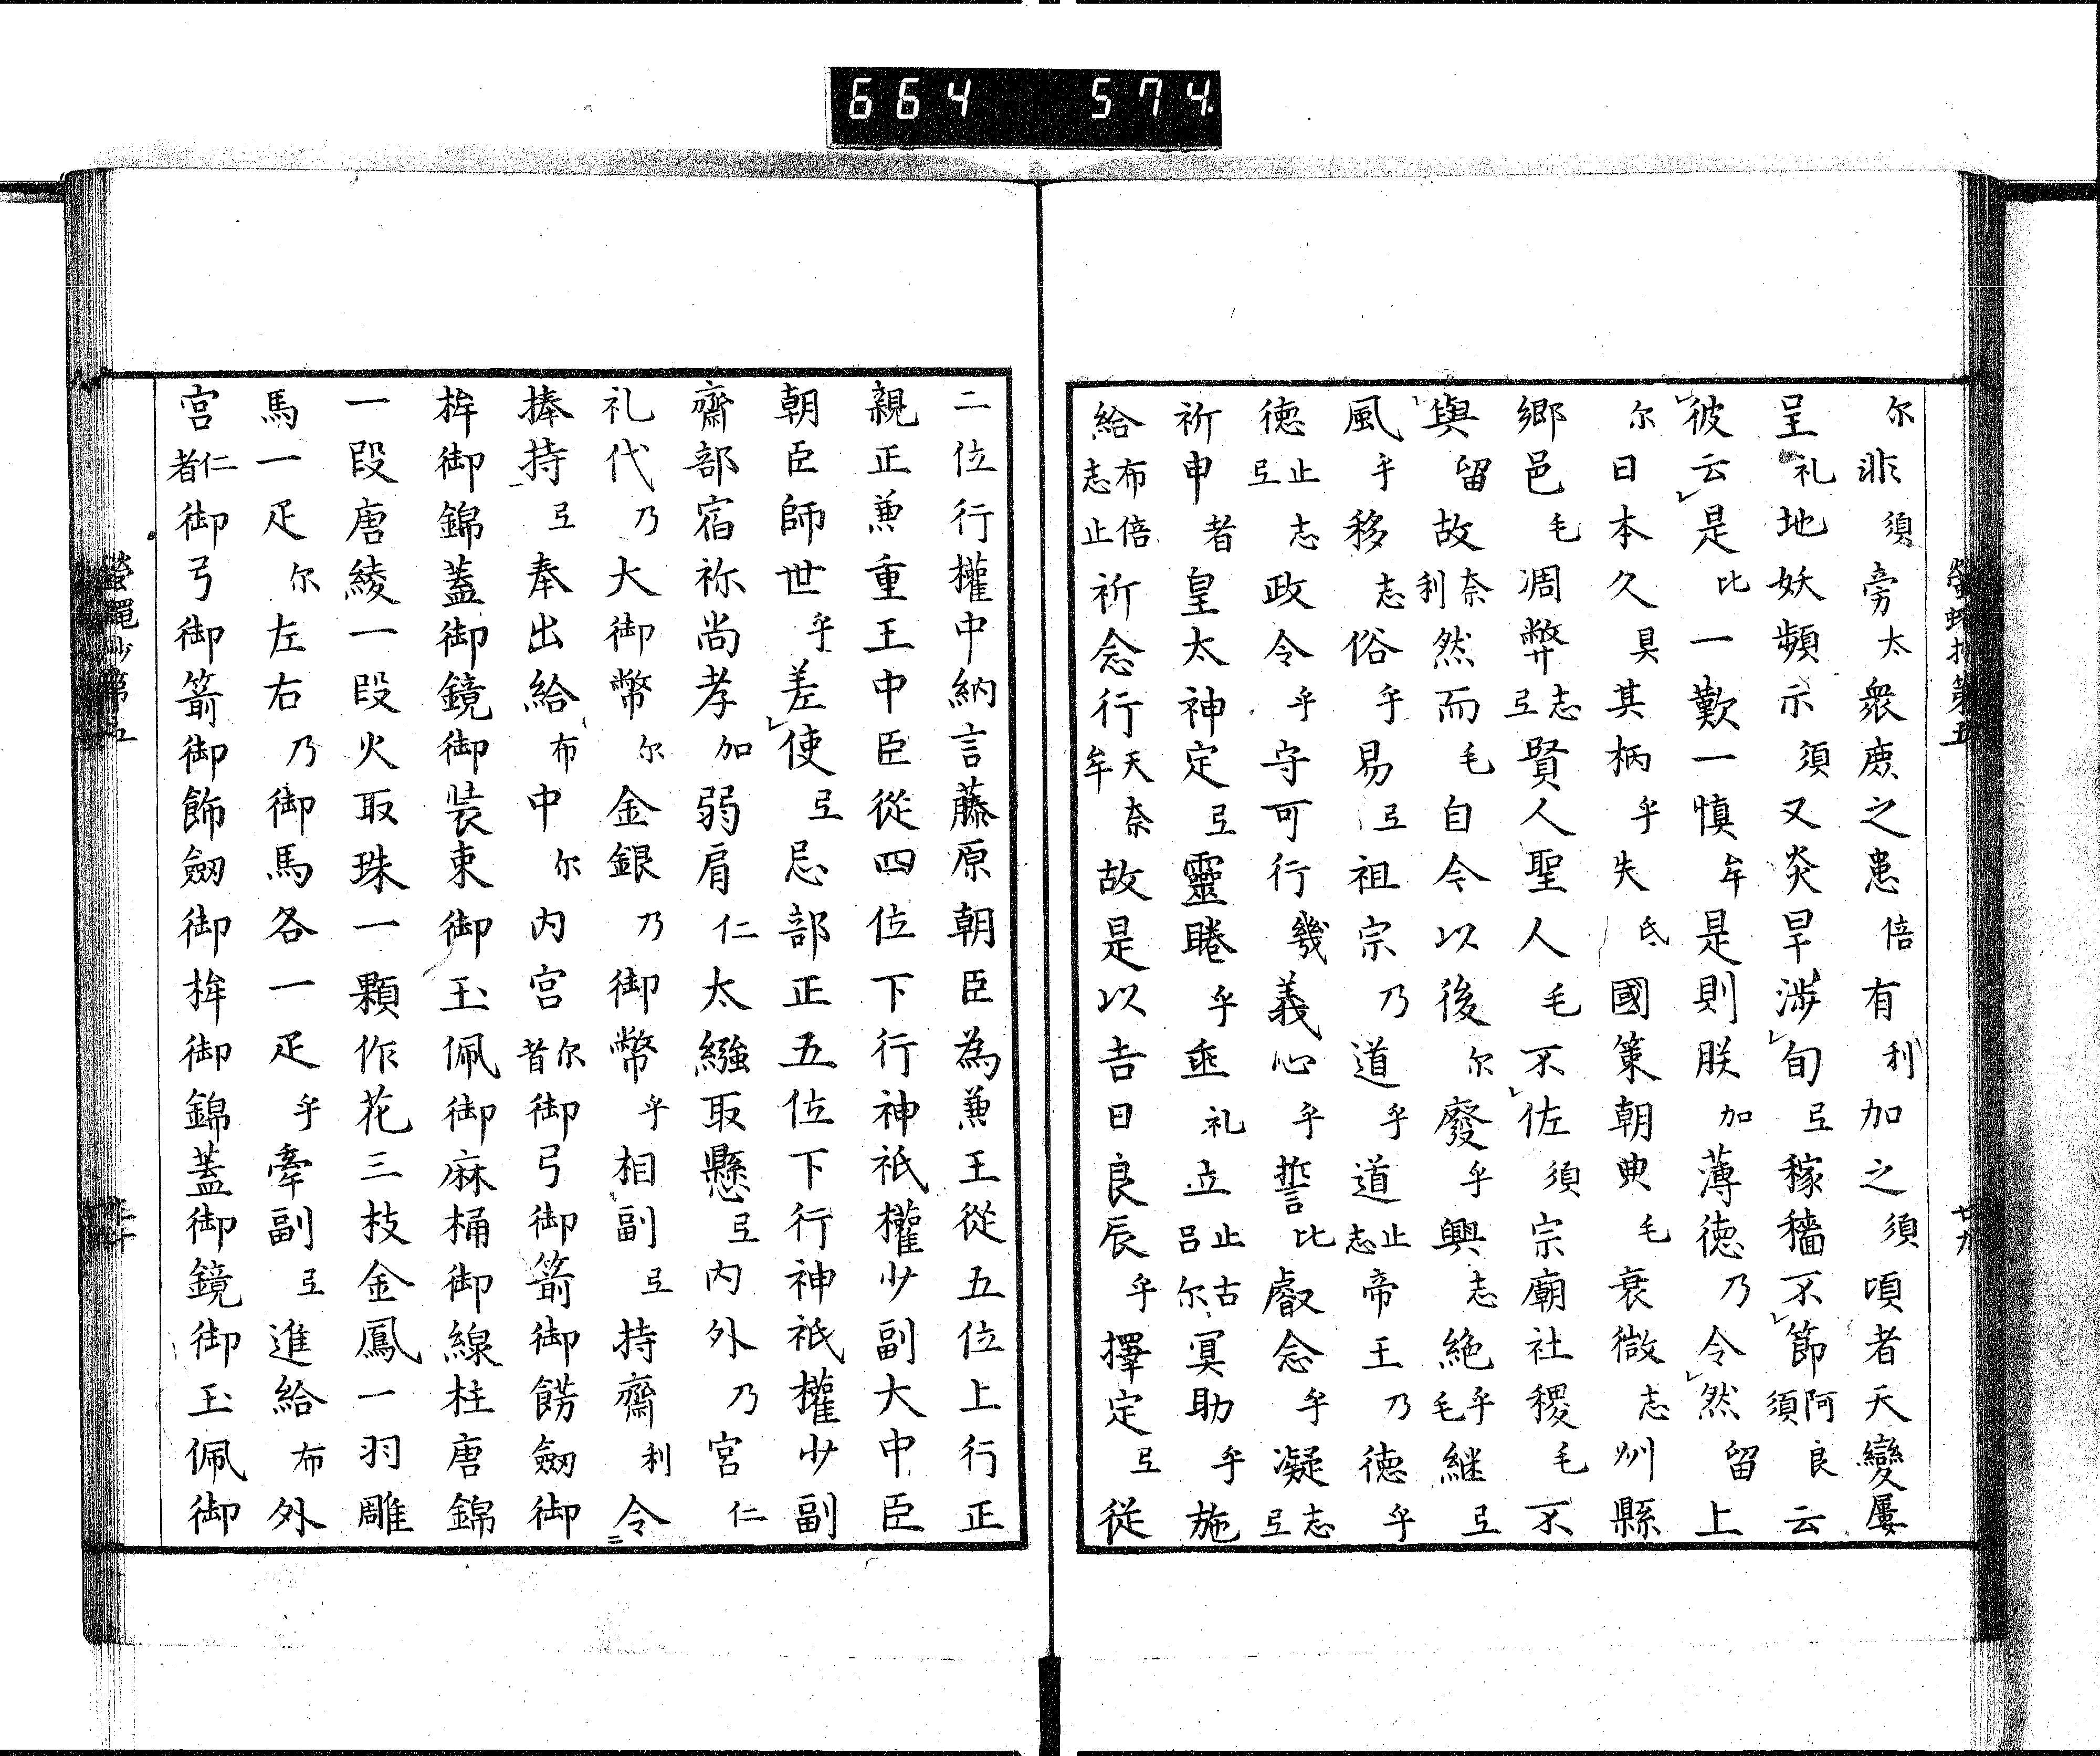 664 574
尓非須旁太衆庶之患倍有利加之須頃者天變屢
呈礼地妖頻示須又炎旱渉旬弖稼穡不節阿須良云
彼云是比一歎一慎牟是則朕加薄徳乃令然留上
尓日本久具其柄乎失氐國策朝典毛衰微志州縣
郷邑毛凋弊志弖賢人聖人毛不佐須宗廟社稷毛不
與留故奈利然而毛自今以後尓廢乎興志絶乎毛継弖
風乎移志俗乎易弖祖宗乃道乎道止志帝王乃徳乎
徳止弖志政令乎守可行幾義心乎誓比叡念乎凝志弖
祈申者皇太神定弖靈睠乎垂礼立止吕古尓冥助乎施
給布志倍止祈念行天牟奈故是以吉日良辰乎擇定弖従
二位行權中納言藤原朝臣為兼王從五位上行正
親正兼重王中臣從四位下行神祇權少副大中臣
朝臣師世乎差使弖忌部正五位下行神祇權少副
齋部宿祢尚孝加弱肩仁太繦取懸弖内外乃宮仁
礼代乃大御幣尓金銀乃御幣乎相副弖持齋利令
捧持弖奉出給布中尓内宮尓者御弓御箭御餝劔御
桙御錦蓋御鏡御裝束御玉佩御麻桶御線柱唐錦
一段唐綾一段火取珠一顆作花三枝金鳳一羽雕
馬一疋尓左右乃御馬各一疋乎牽副弖進給布外
宮仁者御弓御箭御飾劔御桙御錦蓋御鏡御玉佩御